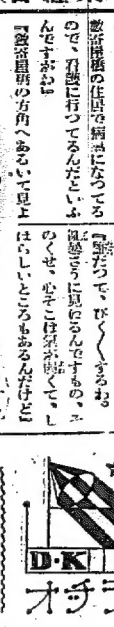 數寄屋橋の住居で病氣になつてる
ので、看護に行つてるんだといふ
んですがね』
『數寄屋橋の方角へあるいて見よ
つて、びく〱するわ。
さうに見えるんですもの、
のくせ、心そこは氣が弱くて、し
ほらしいところもあるんだけど』
D・K
オチ